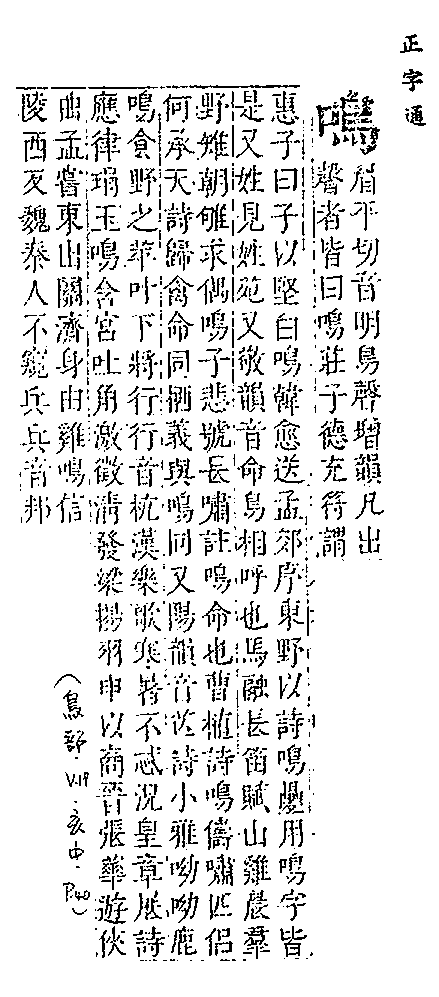 正字通
鳴
眉平切音明鳥聲增韻凡出
聲者皆曰鳴莊子德充符謂
惠子曰子以堅白鳴韓愈送孟郊序東野以詩鳴㬪用鳴字皆
是又姓見姓苑又敬韻音命鳥相呼也馬融長笛賦山雞晨羣
野雉朝雊求偶鳴子悲號長嘯註鳴命也曹植詩鳴儔嘯匹侶
何承天詩歸禽命同栖義與鳴同又陽韻音茫詩小雅呦呦鹿
鳴食野之苹叶下將行行音杭漢樂歌寒暑不忒況皇章展詩
應律鋗玉鳴含宮吐角激徵清發梁揚羽申以商晉張華遊俠
曲孟嘗東出關濟身由雞鳴信
陵西反魏秦人不窺兵兵音邦
(鳥部.V.19.亥中.P.40)